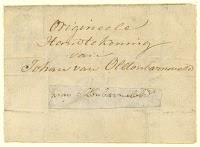 Origineele
Handtekening
van
Johan van Oldenbarneveld